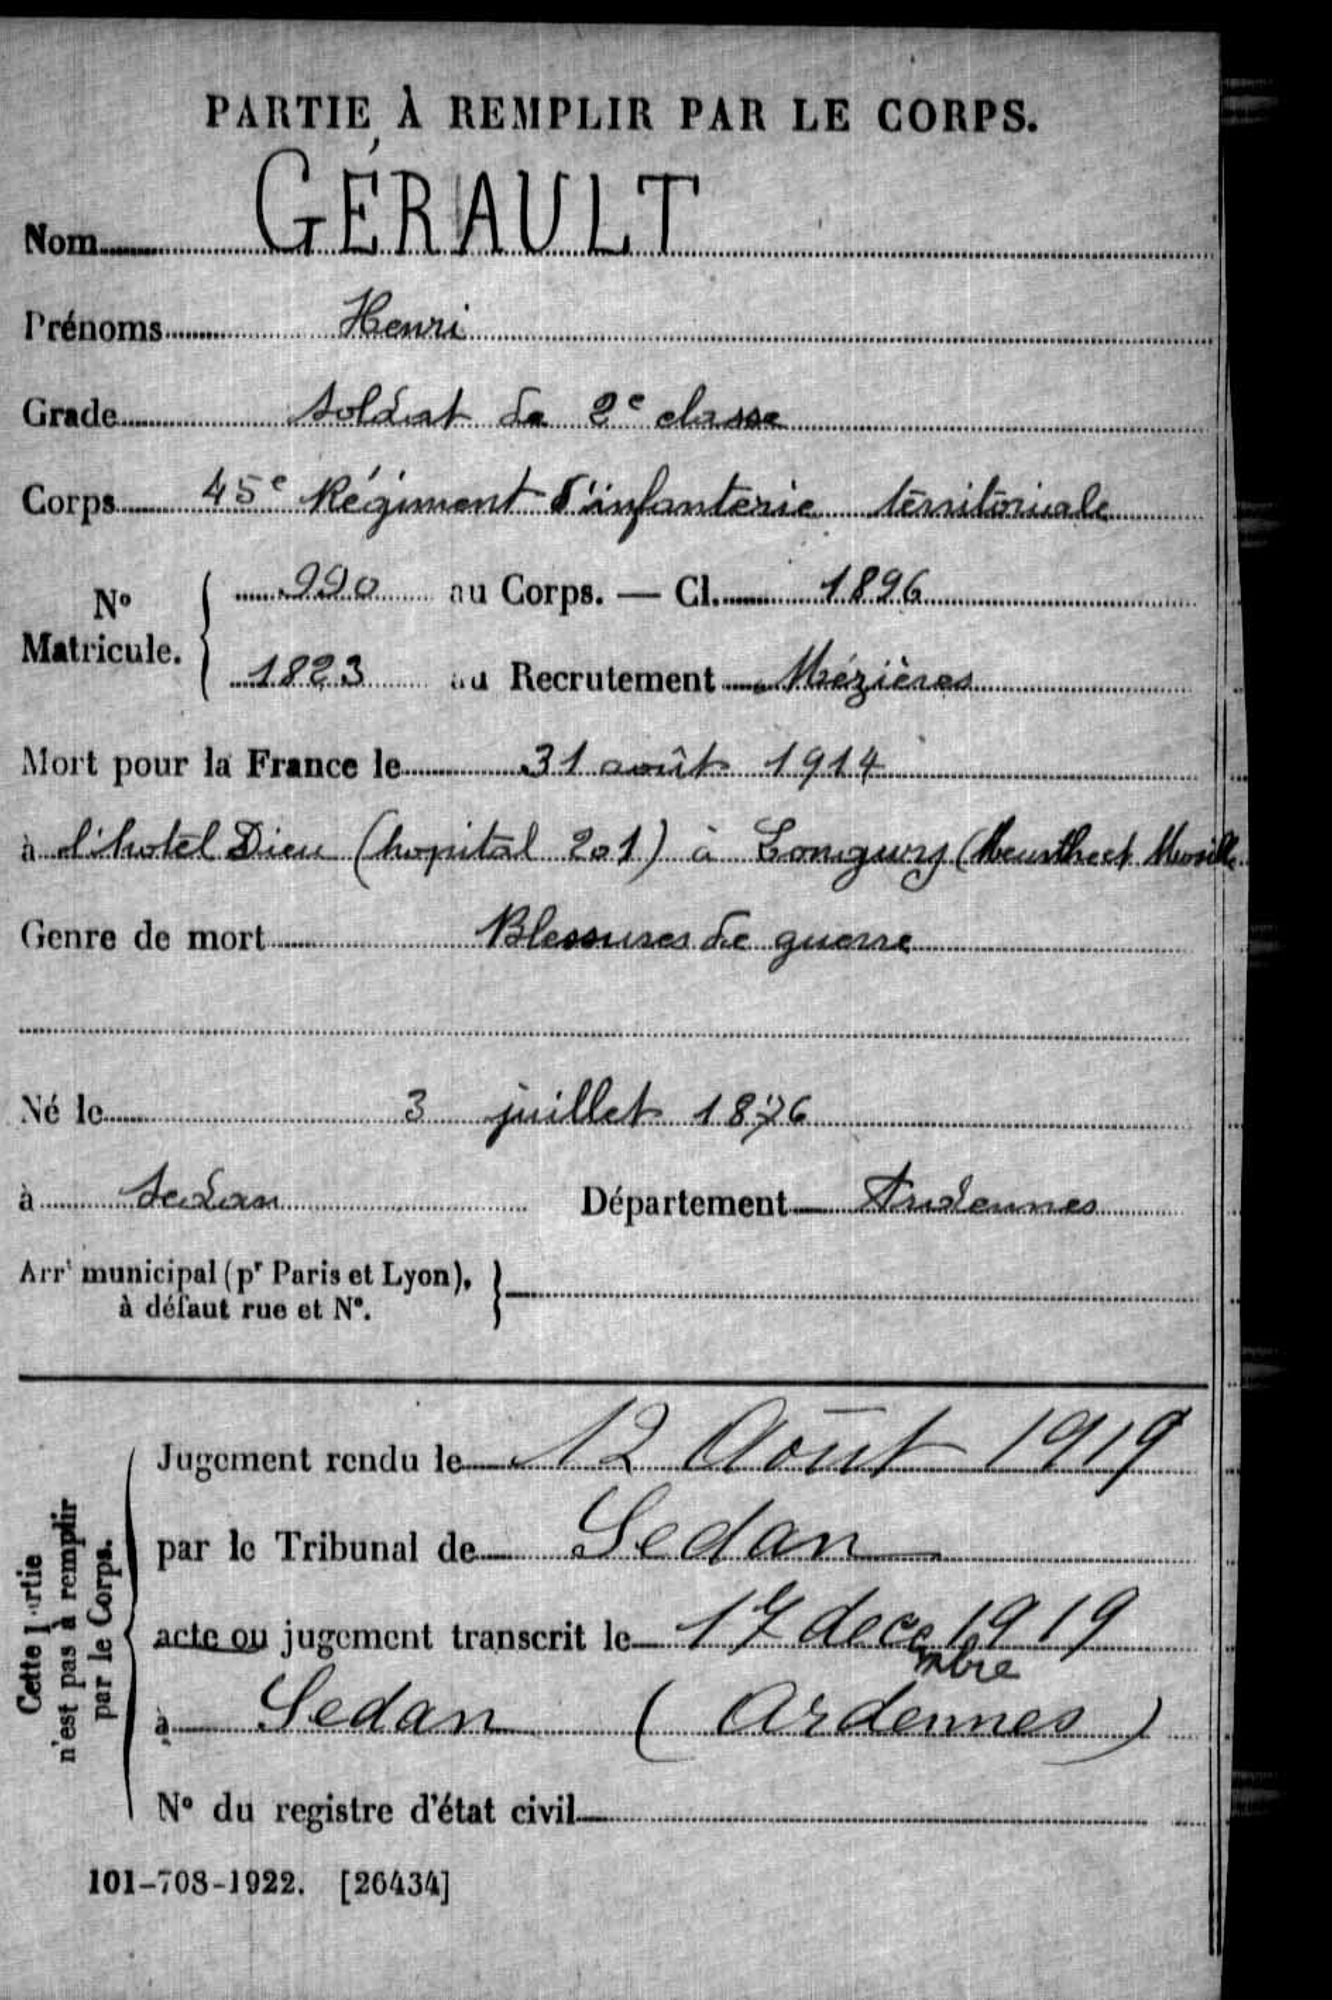 PARTIE À REMPLIR PAR LE CORPS.
Nom GÉRAULT
Prénoms Henri
Grade soldat de 2e classe
Corps 45e Régiment d'infanterie territoriale
N° Matricule. 990 au Corps. — Cl. 1896
1823 au Recrutement Mézières
Mort pour la France le 31 août 1914
à l'hotel Dieu (hopital 201) à Longwy (Meurthe et Moselle
Genre de mort Blessures de guerre
Né le 3 juillet 1876
à Sedan Département Ardennes
Arrt municipal (pr Paris et Lyon),
à défaut rue et N°.
Cette partie n'est pas à remplir par le Corps.
Jugement rendu le 12 Août 1919
par le Tribunal de Sedan
acte ou jugement transcrit le 17 decembre 1919
à Sedan (Ardennes)
N° du registre d'état civil
101-708-1922. [26434]